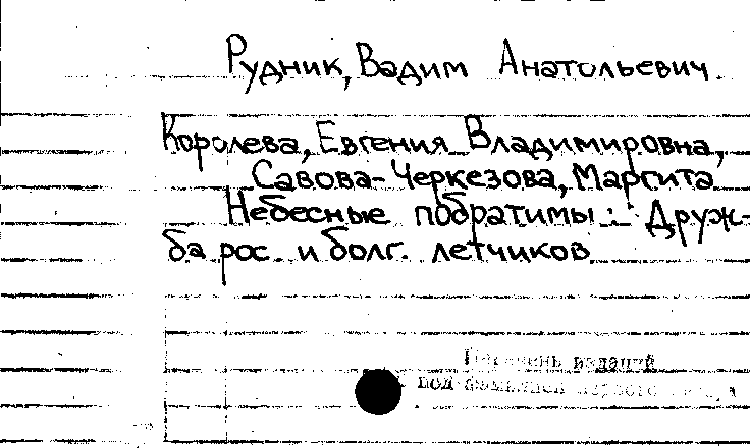 Рудник, Вадим Анатольевич.
Королева, Евгения Владимировна,
Савова-Черкезова, Маргита
Небесные побратимы : Друж-
ба рос. и болг. летчиков
Перечень изданий
под фамилией первого